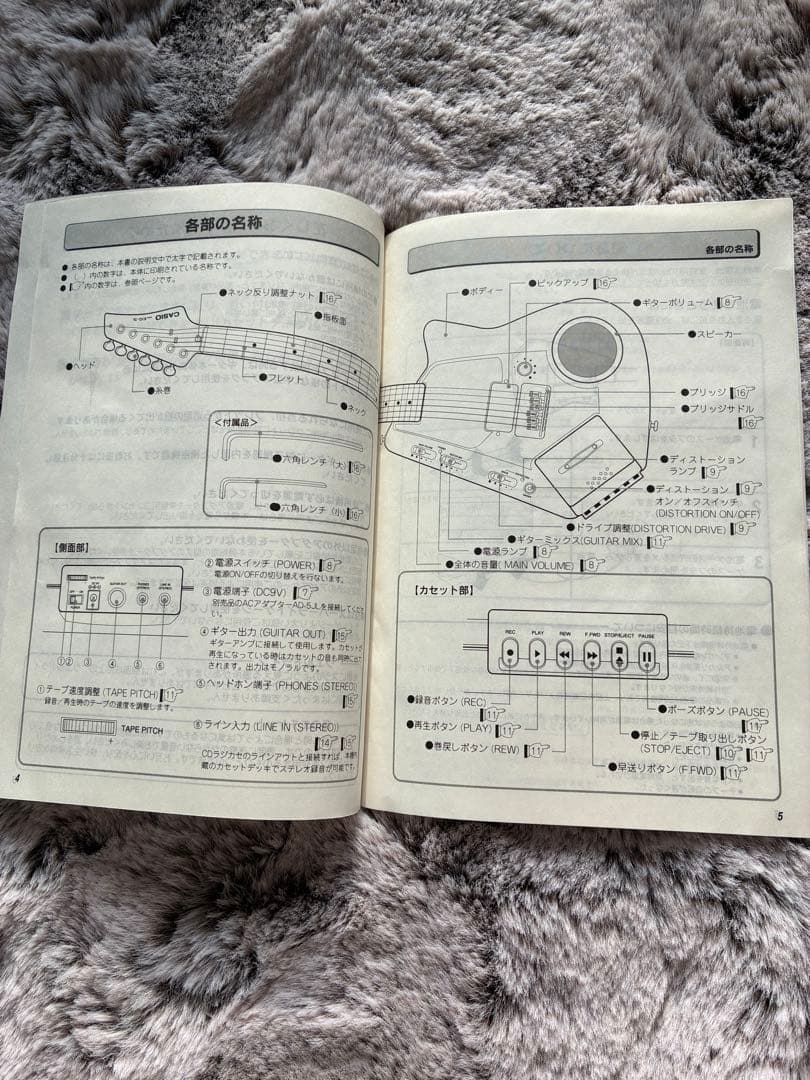 各部の名称
● 各部の名称は、本書の説明文中で太字で記載されます。
● ( )内の数字は、本体に印刷されている名称です。
● 内の数字は、参照ページです。
●ネック反り調整ナット 16
●指板面
CASIO
●ヘッド
●糸巻
●フレット
●ネック
<付属品>
●六角レンチ(大) 16
●六角レンチ(小) 16
【側面部】
TAPE PITCH
GUITAR OUT
PHONES
LINE IN
①② ③ ④ ⑤ ⑥
①テープ速度調整 (TAPE PITCH) 11
録音/再生時のテープの速度を調整します。
TAPE PITCH
− +
②電源スイッチ (POWER) 8
電源ON/OFFの切り替えを行ないます。
③電源端子 (DC9V) 7
別売品のACアダプターAD-5JLを接続してくださ
い。
④ギター出力 (GUITAR OUT) 15
ギターアンプに接続して使用します。カセットが
再生になっている時はカセットの音も同時に出力
されます。出力はモノラルです。
⑤ヘッドホン端子 (PHONES (STEREO))
15
⑥ライン入力 (LINE IN (STEREO))
14 15
CDラジカセのラインアウトと接続すれば、本機内
蔵のカセットデッキでステレオ録音が可能です。
4
各部の名称
●ボディー
●ピックアップ 16
●ギターボリューム 8
●スピーカー
●ブリッジ 16
●ブリッジサドル
16
●ディストーション
ランプ 9
●ディストーション 9
オン/オフスイッチ
(DISTORTION ON/OFF)
●ドライブ調整(DISTORTION DRIVE) 9
●ギターミックス(GUITAR MIX) 11
●電源ランプ 8
●全体の音量( MAIN VOLUME) 8
【カセット部】
REC PLAY REW F.FWD STOP/EJECT PAUSE
●録音ボタン (REC)
11
●再生ボタン (PLAY) 11
●巻戻しボタン (REW) 11
●ポーズボタン (PAUSE)
11
●停止/テープ取り出しボタン
(STOP/EJECT) 10 11
●早送りボタン (F.FWD) 11
5